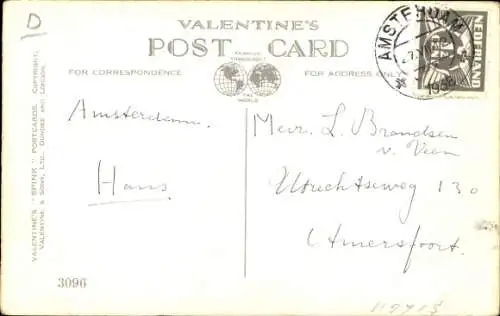 D
VALENTINE'S
POST CARD
FAMOUS THROUGHOUT
THE WORLD
FOR CORRESPONDENCE
FOR ADDRESS ONLY
AMSTERDAM
1938
NEDERLAND
Amsterdam.
Hans
Mevr. L. Brandsen
v. Veen
Utrechtseweg 130
Amersfoort.
VALENTINE'S "SPINK" POSTCARDS. COPYRIGHT.
VALENTINE & SONS, LTD., DUNDEE AND LONDON.
3096